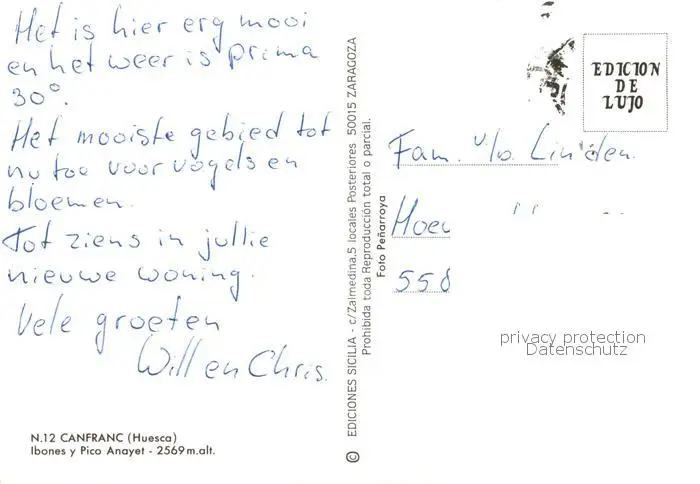 Het is hier erg mooi
en het weer is prima
30°.
Het mooiste gebied tot
nu toe voor vogels en
bloemen.
Tot ziens in jullie
nieuwe woning.
Vele groeten
Will en Chris.
N.12 CANFRANC (Huesca)
Ibones y Pico Anayet - 2569 m.alt.
© EDICIONES SICILIA - c/Zalmedina,5 locales Posteriores 50015 ZARAGOZA
Prohibida toda Reproducción total o parcial.
Foto Peñarroya
EDICION
DE
LUJO
Fam. v/d. Linden.
Hoe
558
privacy protection
Datenschutz